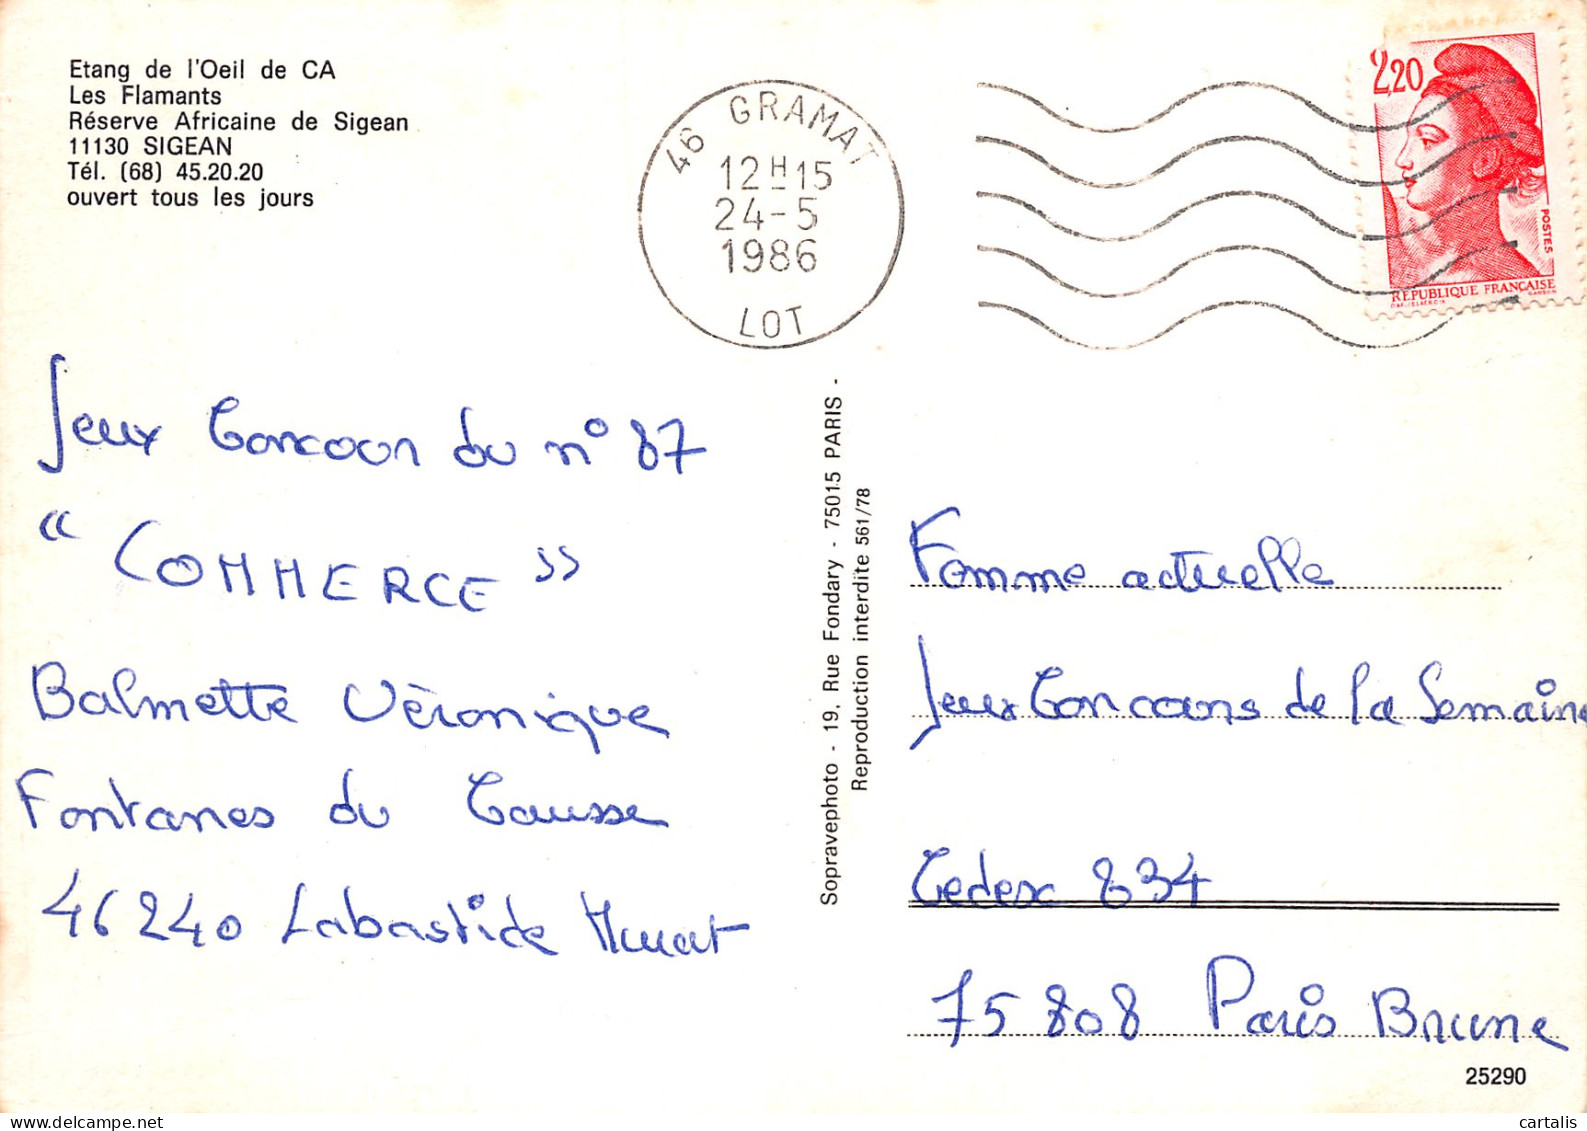 Etang de l'Oeil de CA
Les Flamants
Réserve Africaine de Sigean
11130 SIGEAN
Tél. (68) 45.20.20
ouvert tous les jours
46 GRAMAT
12H15
24-5
1986
LOT
2,20
POSTES
REPUBLIQUE FRANÇAISE
Jeux Concour du n° 87
“ COMMERCE ”
Balmette Véronique
Fontanes du Causse
46240 Labastide Murat
Sopravephoto - 19, Rue Fondary - 75015 PARIS -
Reproduction interdite 561/78
Femme actuelle
Jeux Concours de la Semaine
Cedex 834
75808 Paris Brune
25290
cartalis